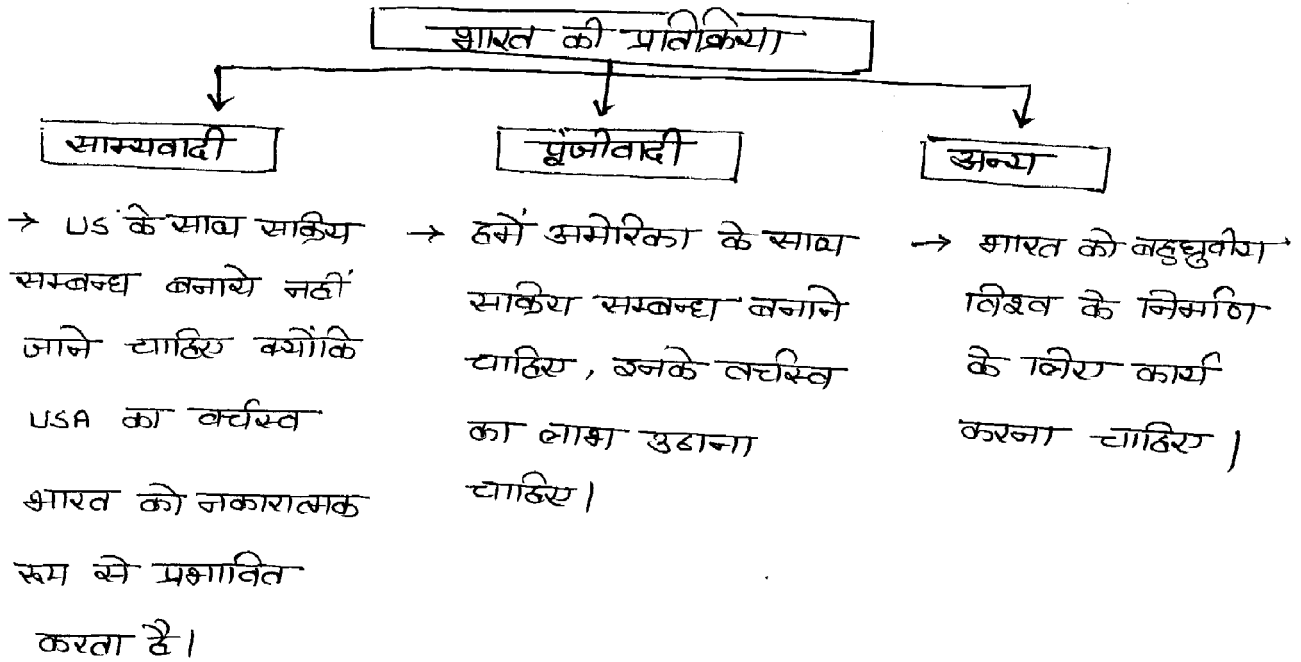 भारत की प्रतिक्रिया
साम्यवादी
→ US के साथ सक्रिय
सम्बन्ध बनाये नहीं
जाने चाहिए क्योंकि
USA का वर्चस्व
भारत को नकारात्मक
रूप से प्रभावित
करता है।
पूंजीवादी
→ हमें अमेरिका के साथ
सक्रिय सम्बन्ध बनाने
चाहिए, इनके वर्चस्व
का लाभ उठाना
चाहिए।
अन्य
→ भारत को बहुध्रुवीय
विश्व के निर्माण
के लिए कार्य
करना चाहिए।